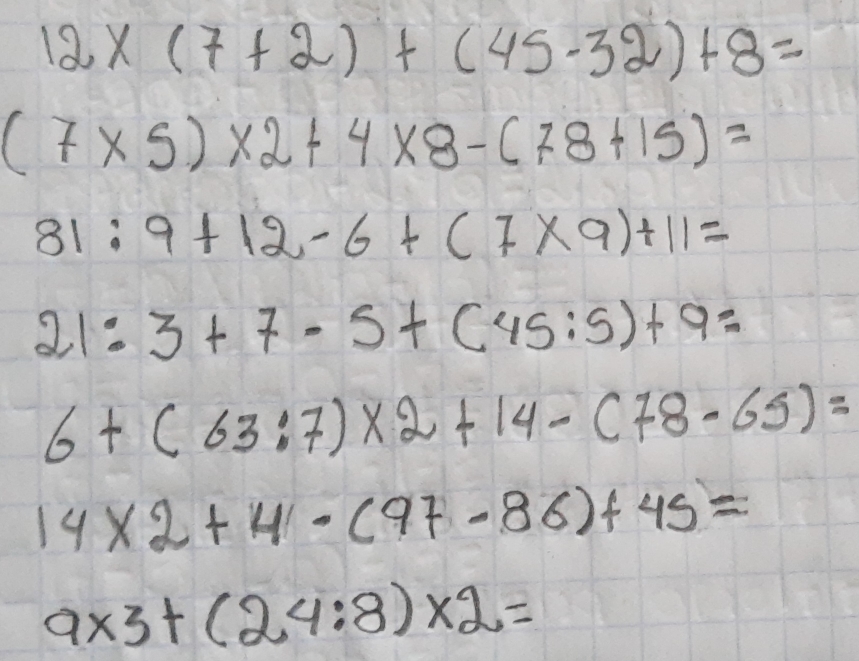 12 × (7 + 2) + (45 - 32) + 8 =
(7 × 5) × 2 + 4 × 8 - (78 + 15) =
81 : 9 + 12 - 6 + (7 × 9) + 11 =
21 : 3 + 7 - 5 + (45 : 5) + 9 =
6 + (63 : 7) × 2 + 14 - (78 - 65) =
14 × 2 + 4 - (97 - 86) + 45 =
9 × 3 + (24 : 8) × 2 =